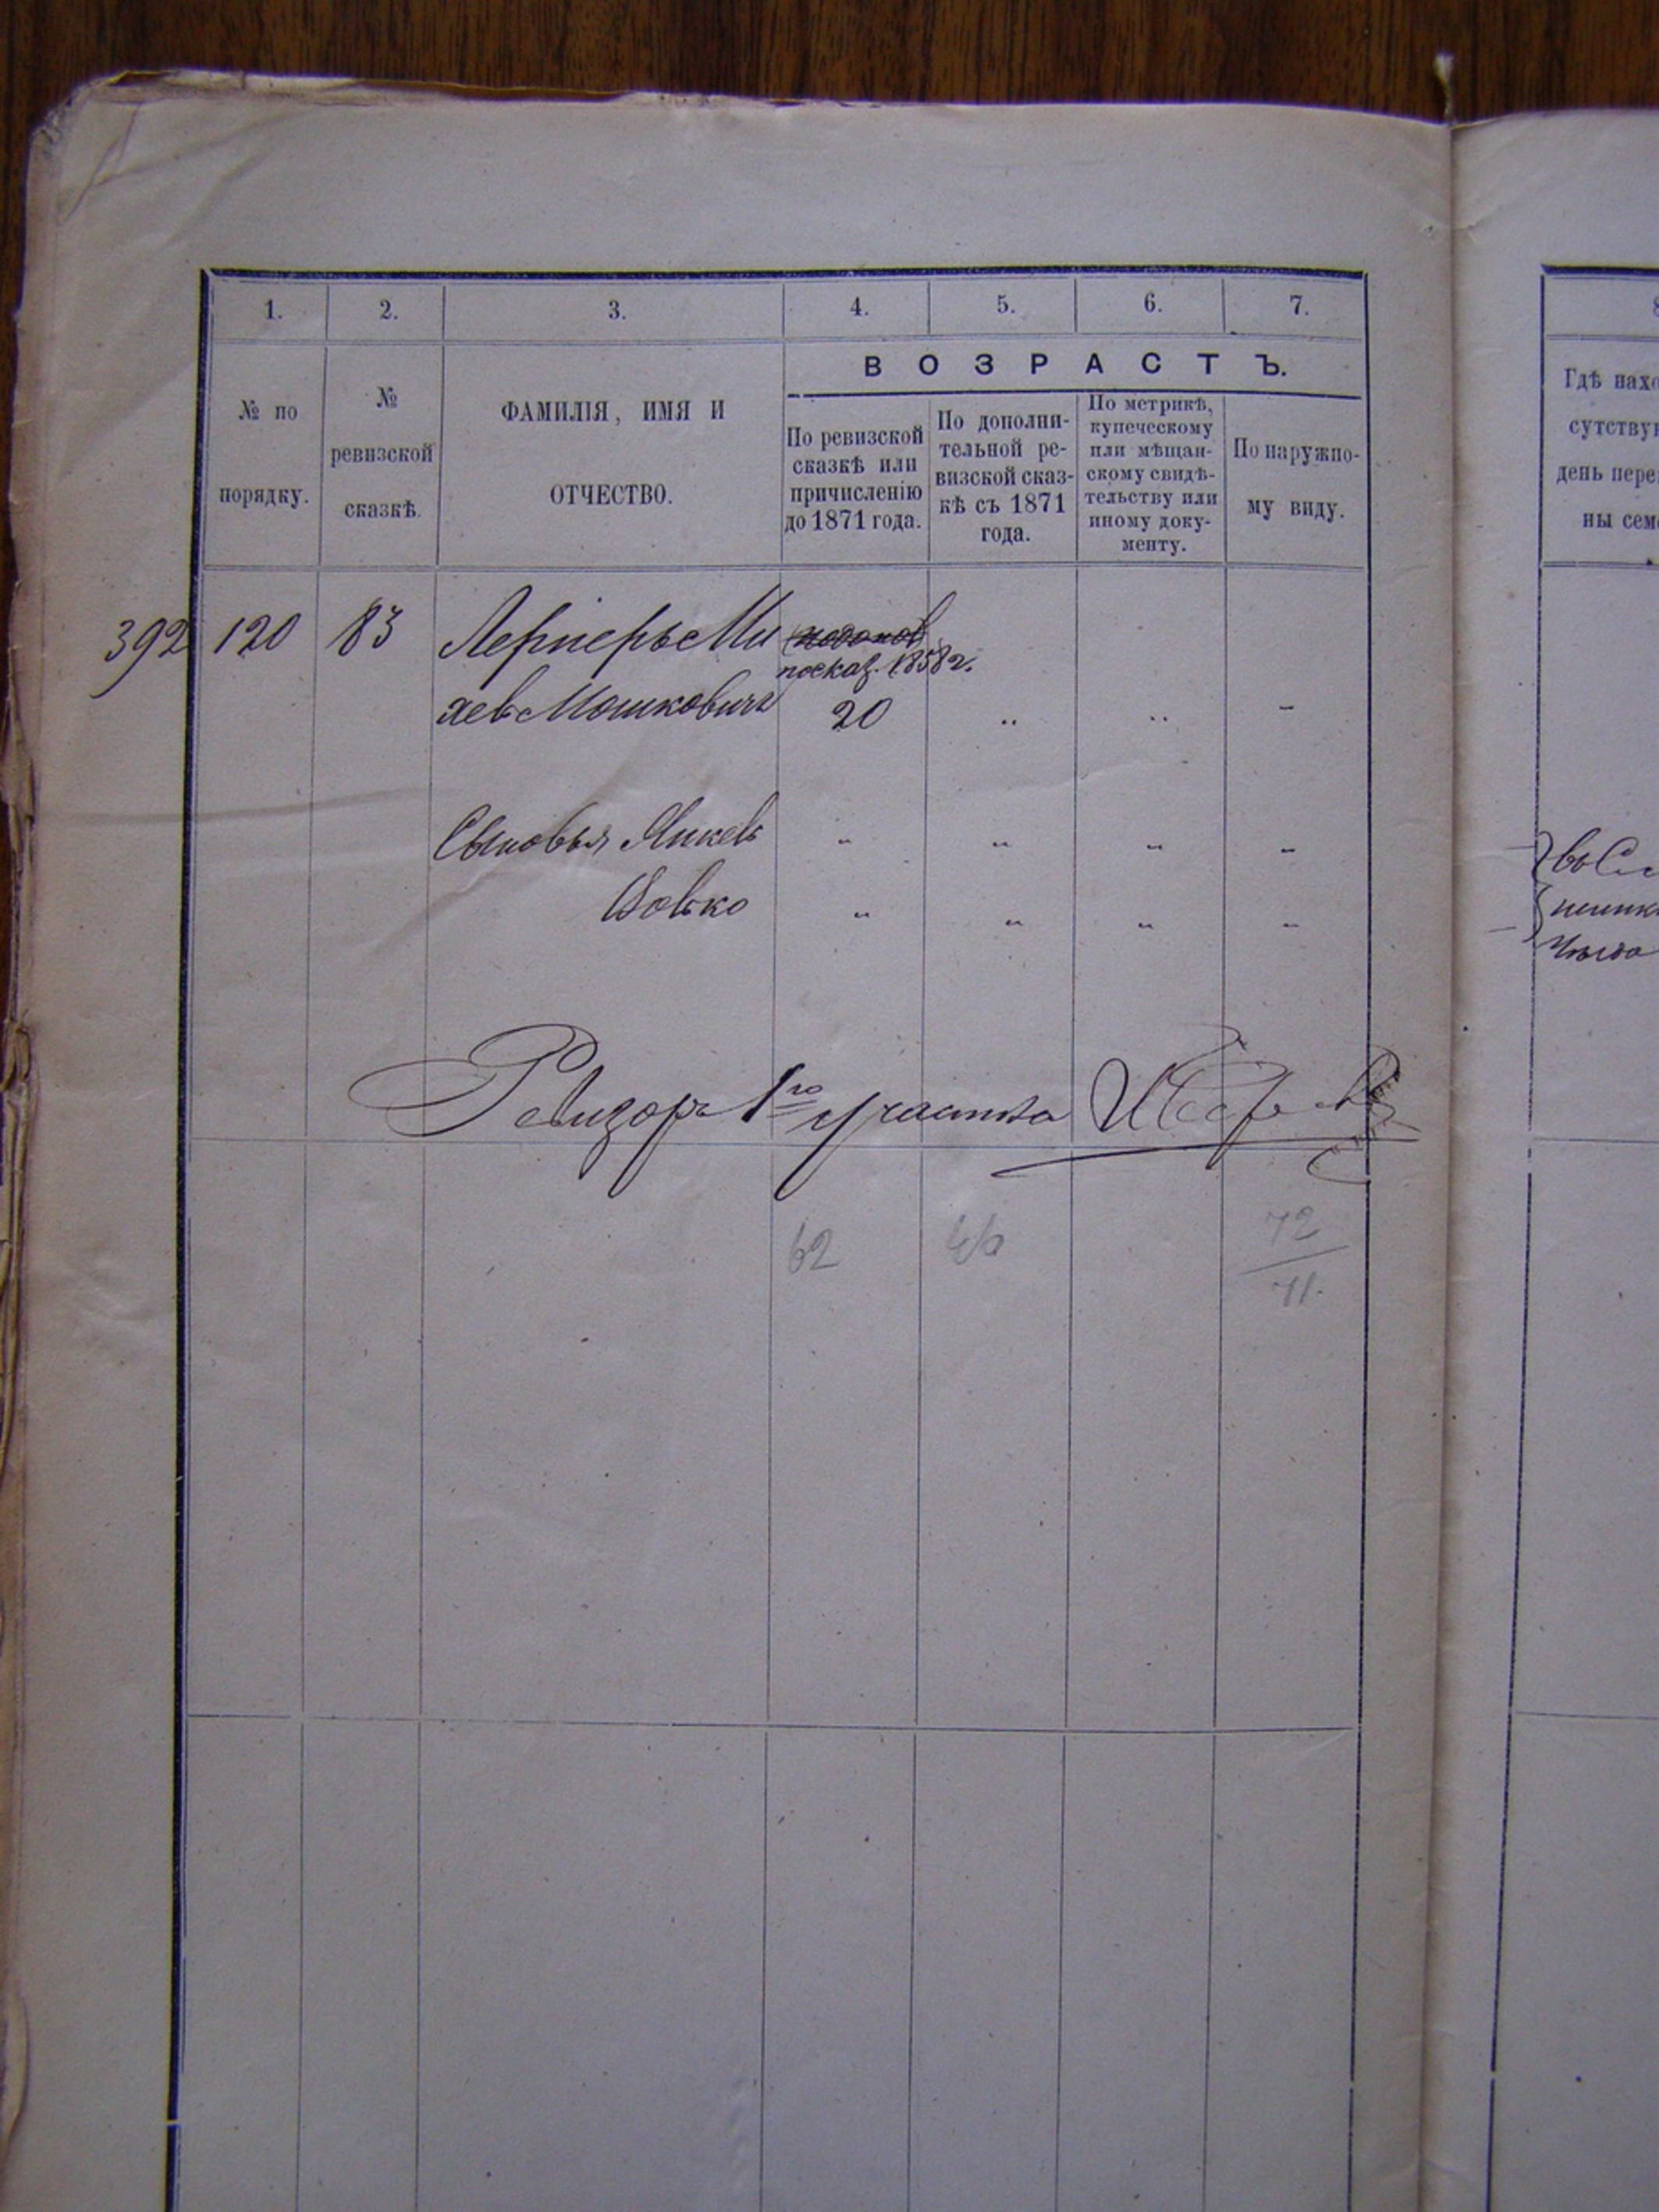 1. 2. 3. 4. 5. 6. 7.
ВОЗРАСТЪ.
№ по
порядку.
№
ревизской
сказкѣ.
ФАМИЛІЯ, ИМЯ И
ОТЧЕСТВО.
По ревизской
сказкѣ или
причисленію
до 1871 года.
По дополни-
тельной ре-
визской сказ-
кѣ съ 1871
года.
По метрикѣ,
купеческому
или мѣщан-
скому свидѣ-
тельству или
иному доку-
менту.
По наружно-
му виду.
392 120 83 Лернеръ Ми
по сказ. 1858 г.
хев Мошковичъ 20 " " -
Сыновья Янкель " " " -
Вовко " " " "
Ревизоръ 1го участка
62
72
71.
Гдѣ нахо
сутству
день пере
ны сем